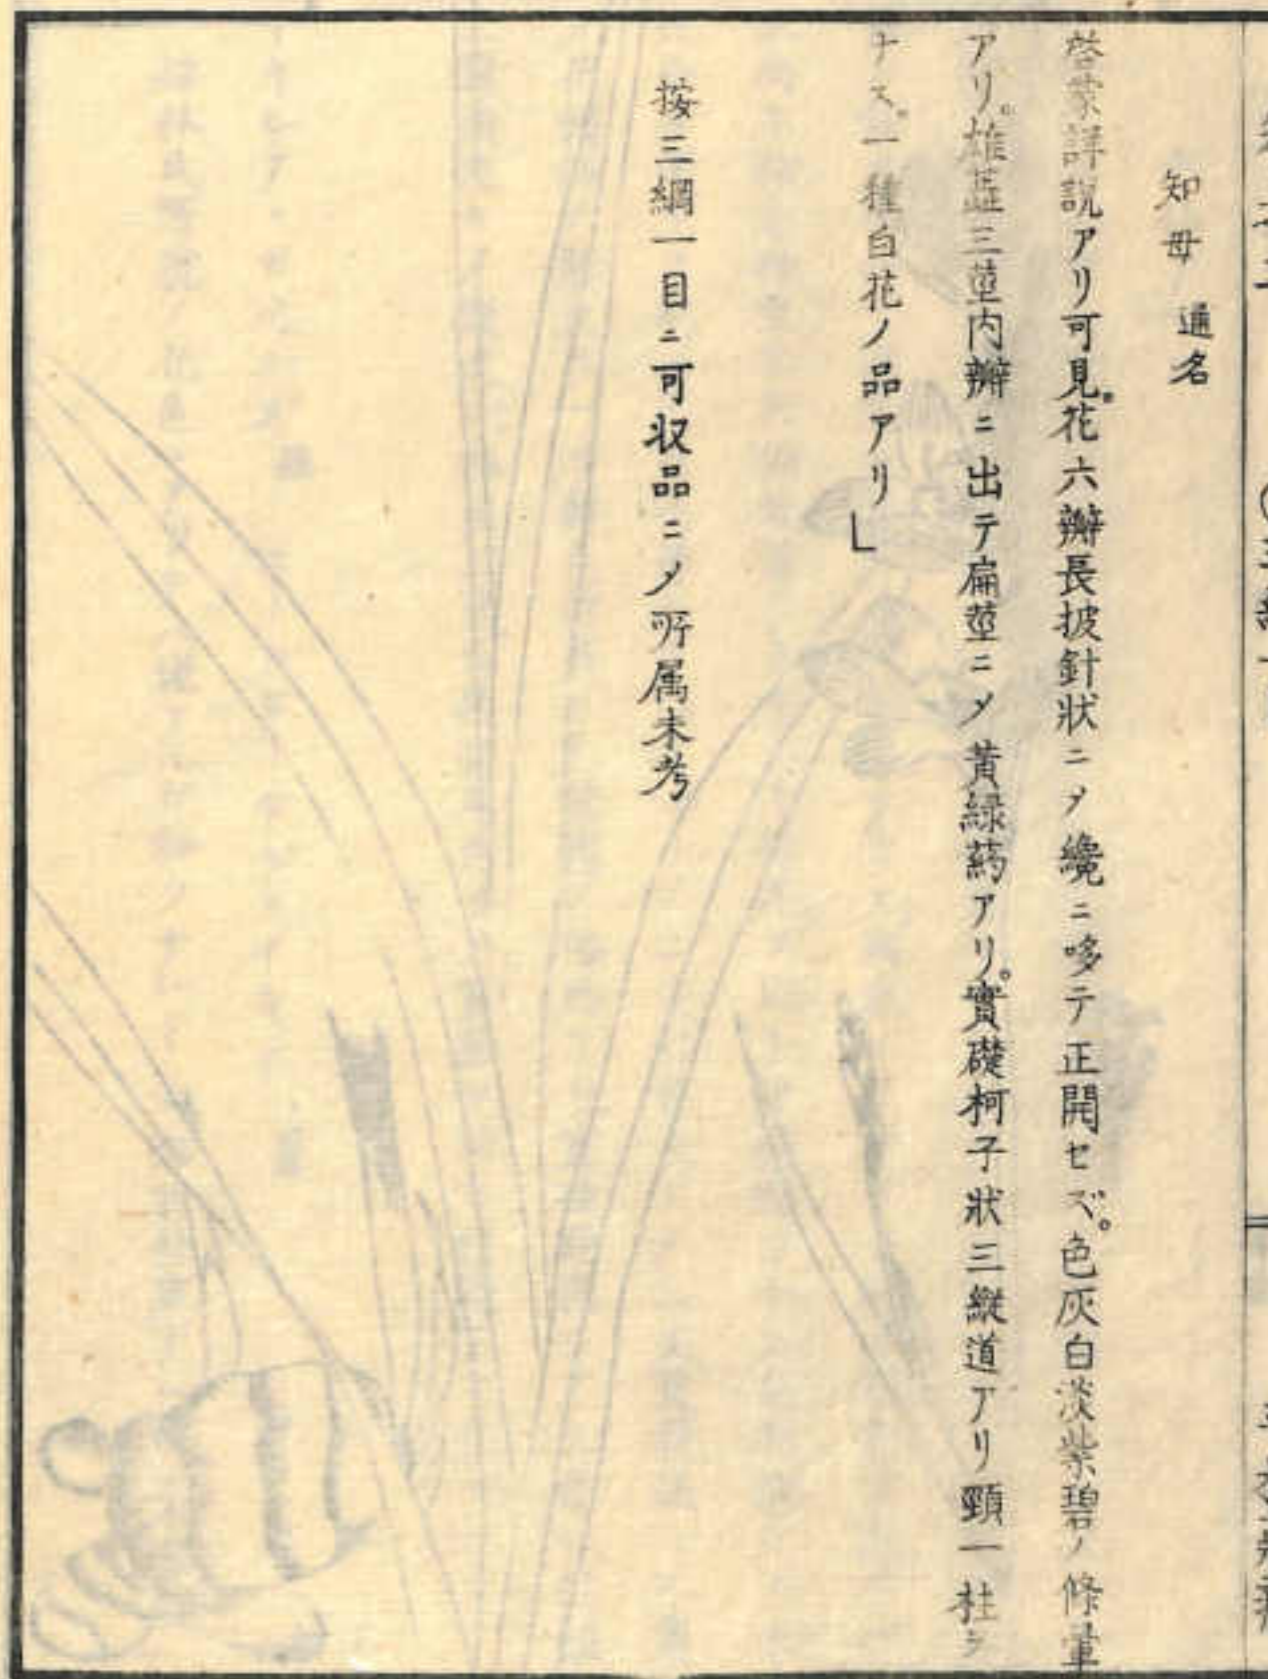 知母 通名
啓蒙詳説アリ可見。花六瓣長披針状ニメ纔ニ哆テ正開セズ。色灰白淡紫碧ノ條暈
アリ。雄蕋三莖内瓣ニ出テ扁莖ニメ黄緑葯アリ。實礎柯子狀三縱道アリ顕一柱ヲ
ナス。一種白花ノ品アリ」
按三綱一目ニ可収品ニメ所属未考